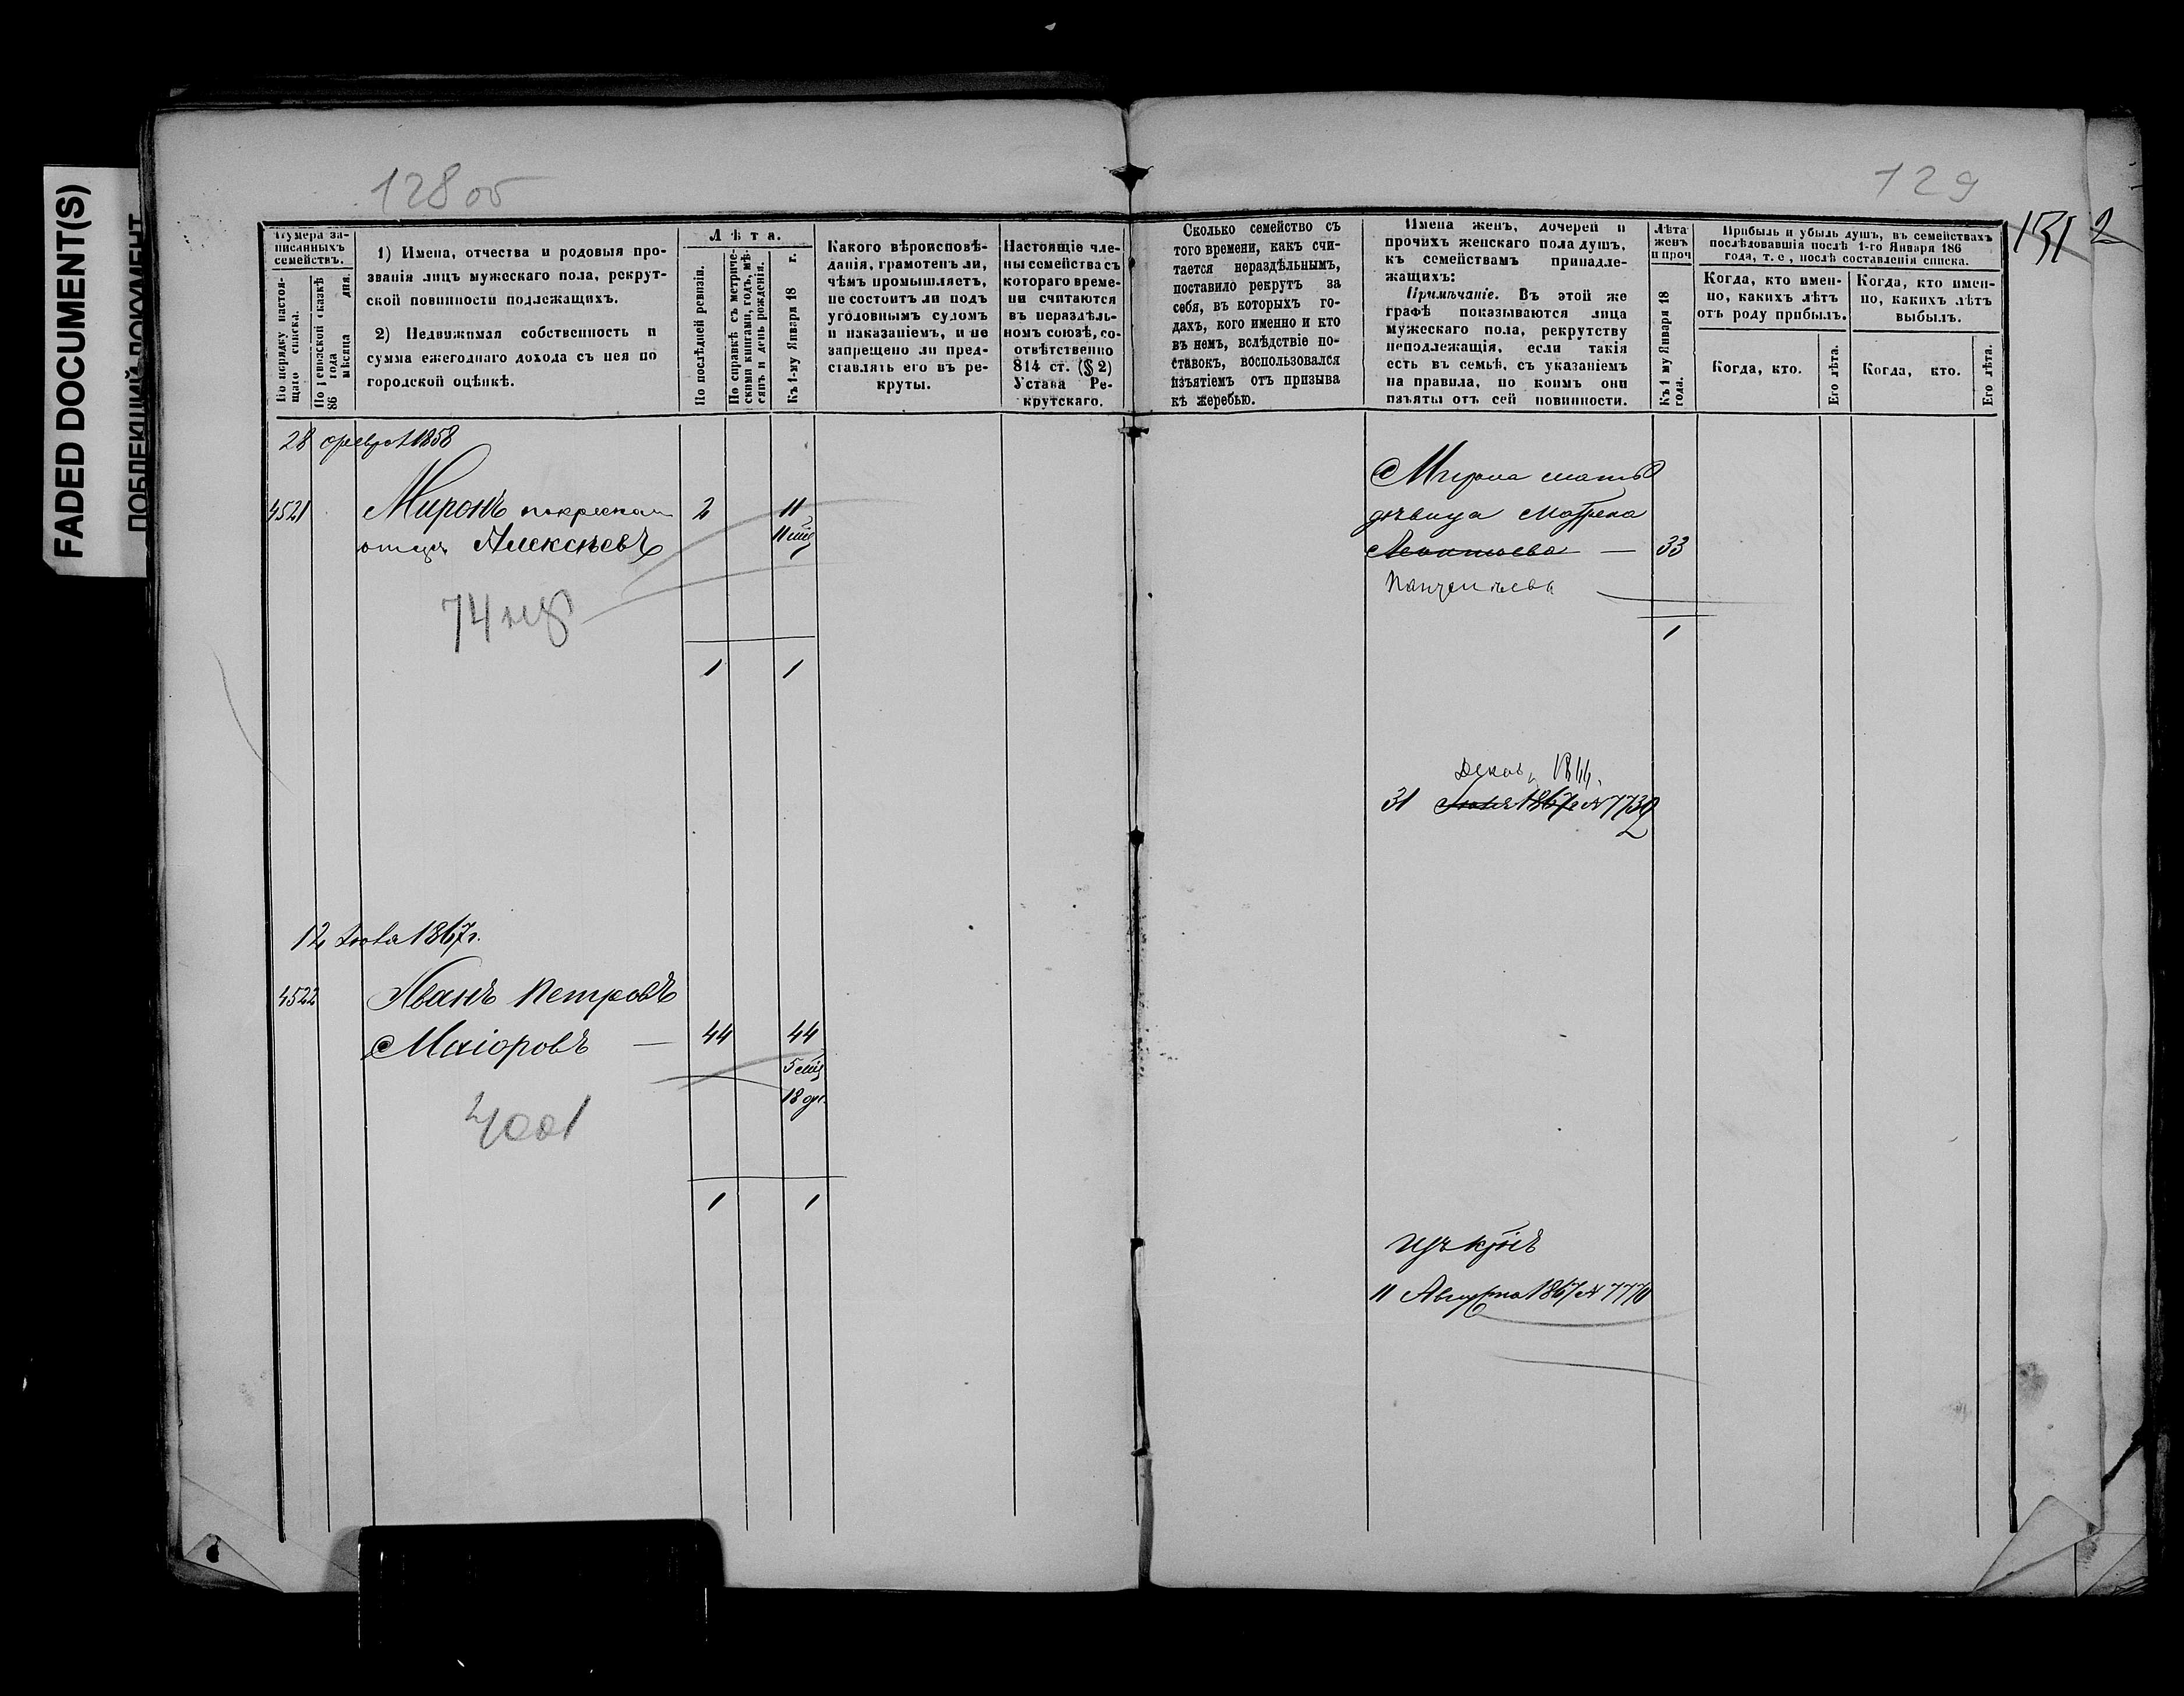 FADED DOCUMENT(S)
128 об
Нумера за-
писанныхъ
семействъ.
По порядку настоя-
щаго списка.
По ревизской сказкѣ
86 года
мѣсяца дня.
1) Имена, отчества и родовыя про-
званія лицъ мужескаго пола, рекрут-
ской повинности подлежащихъ.
2) Недвижимая собственность и
сумма ежегоднаго дохода съ нея по
городской оцѣнкѣ.
Лѣта.
По послѣдней ревизіи.
По справкѣ съ метриче-
скими книгами, годъ, мѣ-
сяцъ и день рожденія.
Къ 1-му Января 18 г.
Какого вѣроисповѣ-
данія, грамотенъ ли,
чѣмъ промышляетъ,
не состоитъ ли подъ
уголовнымъ судомъ
и наказаніемъ, и не
запрещено ли пред-
ставлять его въ ре-
круты.
Настоящіе чле-
ны семейства съ
котораго време-
ни считаются
въ нераздѣль-
номъ союзѣ, со-
отвѣтственно
814 ст. (§ 2)
Устава Ре-
крутскаго.
28 февр 1858
4521 Миронъ по крестном 2 11
отцу Алексѣевъ 11 мѣс
74 мѣ
1 1
12 Іюня 1867г.
4522 Иванъ Петровъ
Маіоровъ — 44 44
5 мѣс
18 дн.
4001
1 1
129
131 2
Сколько семейство съ
того времени, какъ счи-
тается нераздѣльнымъ,
поставило рекрутъ за
себя, въ которыхъ го-
дахъ, кого именно и кто
въ немъ, вслѣдствіе по-
ставокъ, воспользовался
изъятіемъ отъ призыва
къ жеребью.
Имена женъ, дочерей и
прочихъ женскаго пола душъ,
къ семействамъ принадле-
жащихъ:
Примѣчаніе. Въ этой же
графѣ показываются лица
мужескаго пола, рекрутству
неподлежащія, если такія
есть въ семьѣ, съ указаніемъ
на правила, по коимъ они
изъяты отъ сей повинности.
Лѣта
женъ
и проч
Къ 1 му Января 18
года.
Прибыль и убыль душъ, въ семействахъ
послѣдовавшія послѣ 1-го Января 186
года, т. е , послѣ составленія списка.
Когда, кто имен-
но, какихъ лѣтъ
отъ роду прибылъ.
Когда, кто имен-
но, какихъ лѣтъ
выбылъ.
Когда, кто.
Его лѣта.
Когда, кто.
Его лѣта.
Мирона мать
дѣвица Матрена
Леонтьева — 33
1
31 Іюля 1867г № 7739
11 Августа 1867 № 7770